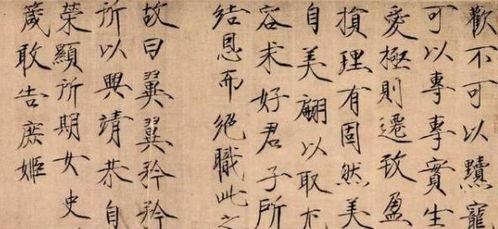 歡不可以黷寵
可以專專實生
愛極則遷致盈
損理有固然美
自美翩以取尤
容求好君子所
結恩而絕職此之
故曰翼翼矜矜
所以興靖恭自
榮顯所期女史
箴敢告庶姬